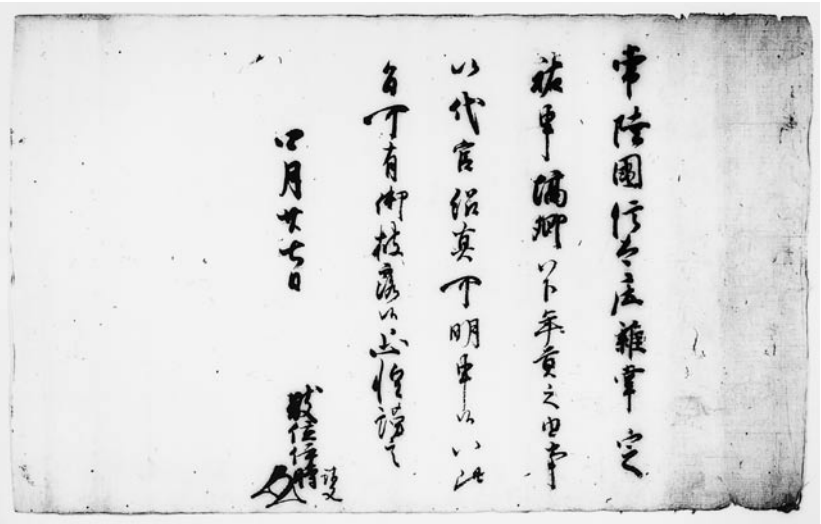 常陸國信太庄雜掌定
祐申塙郷以下年貢之由事
以代官紹真可明申候以此
旨可有御披露候恐惶謹言
四月廿七日
散位信時請文